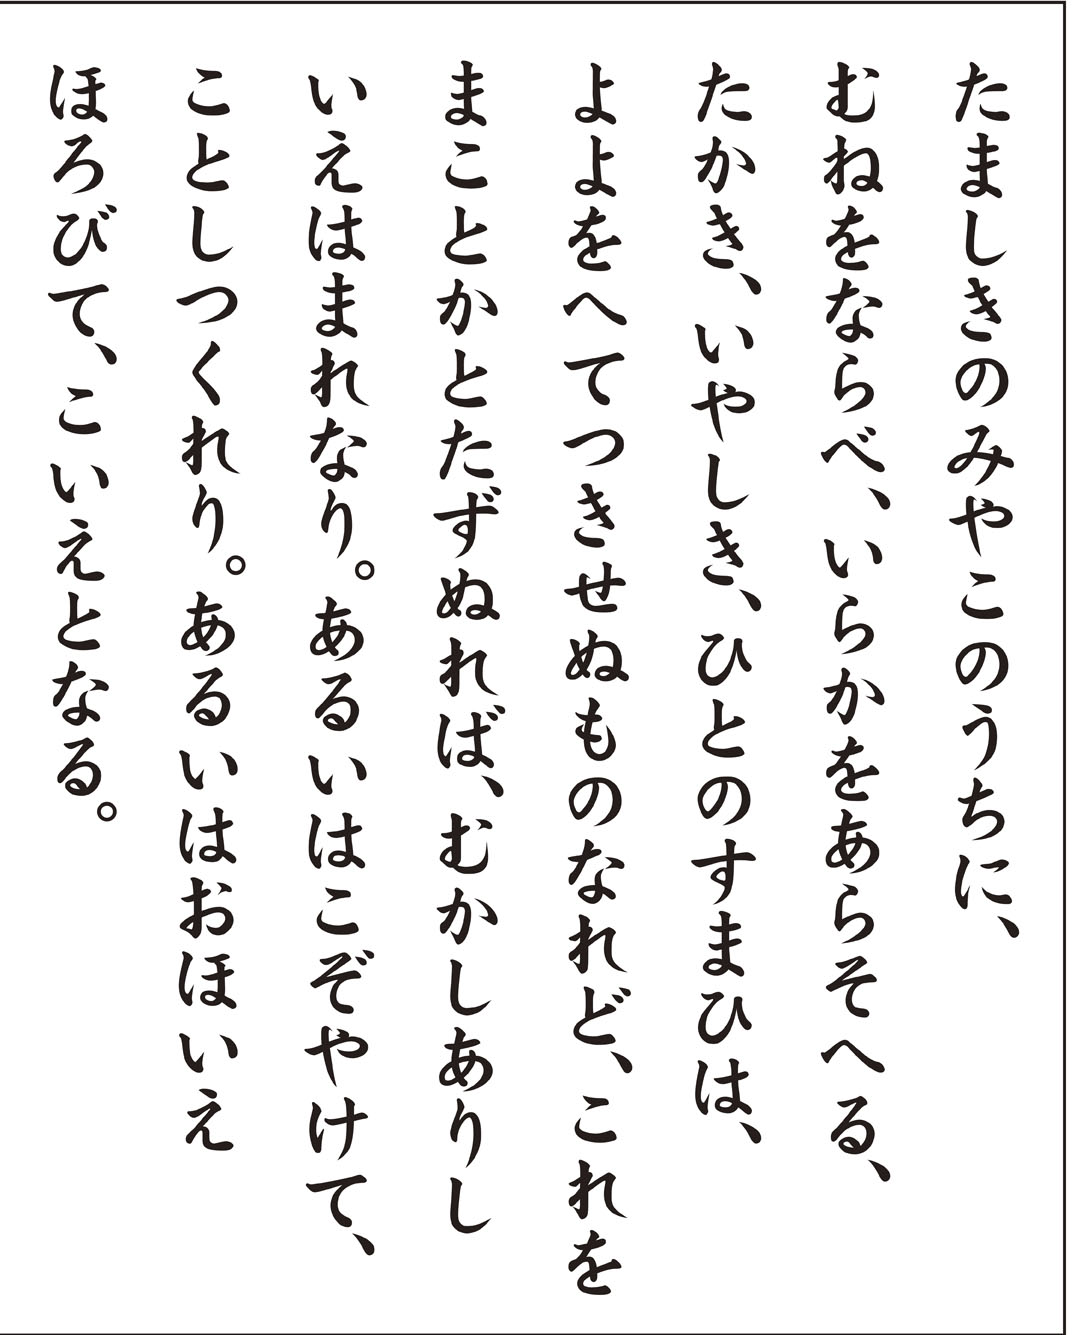 たましきのみやこのうちに、
むねをならべ、いらかをあらそへる、
たかき、いやしき、ひとのすまひは、
よよをへてつきせぬものなれど、これを
まことかとたずぬれば、むかしありし
いえはまれなり。あるいはこぞやけて、
ことしつくれり。あるいはおほいえ
ほろびて、こいえとなる。